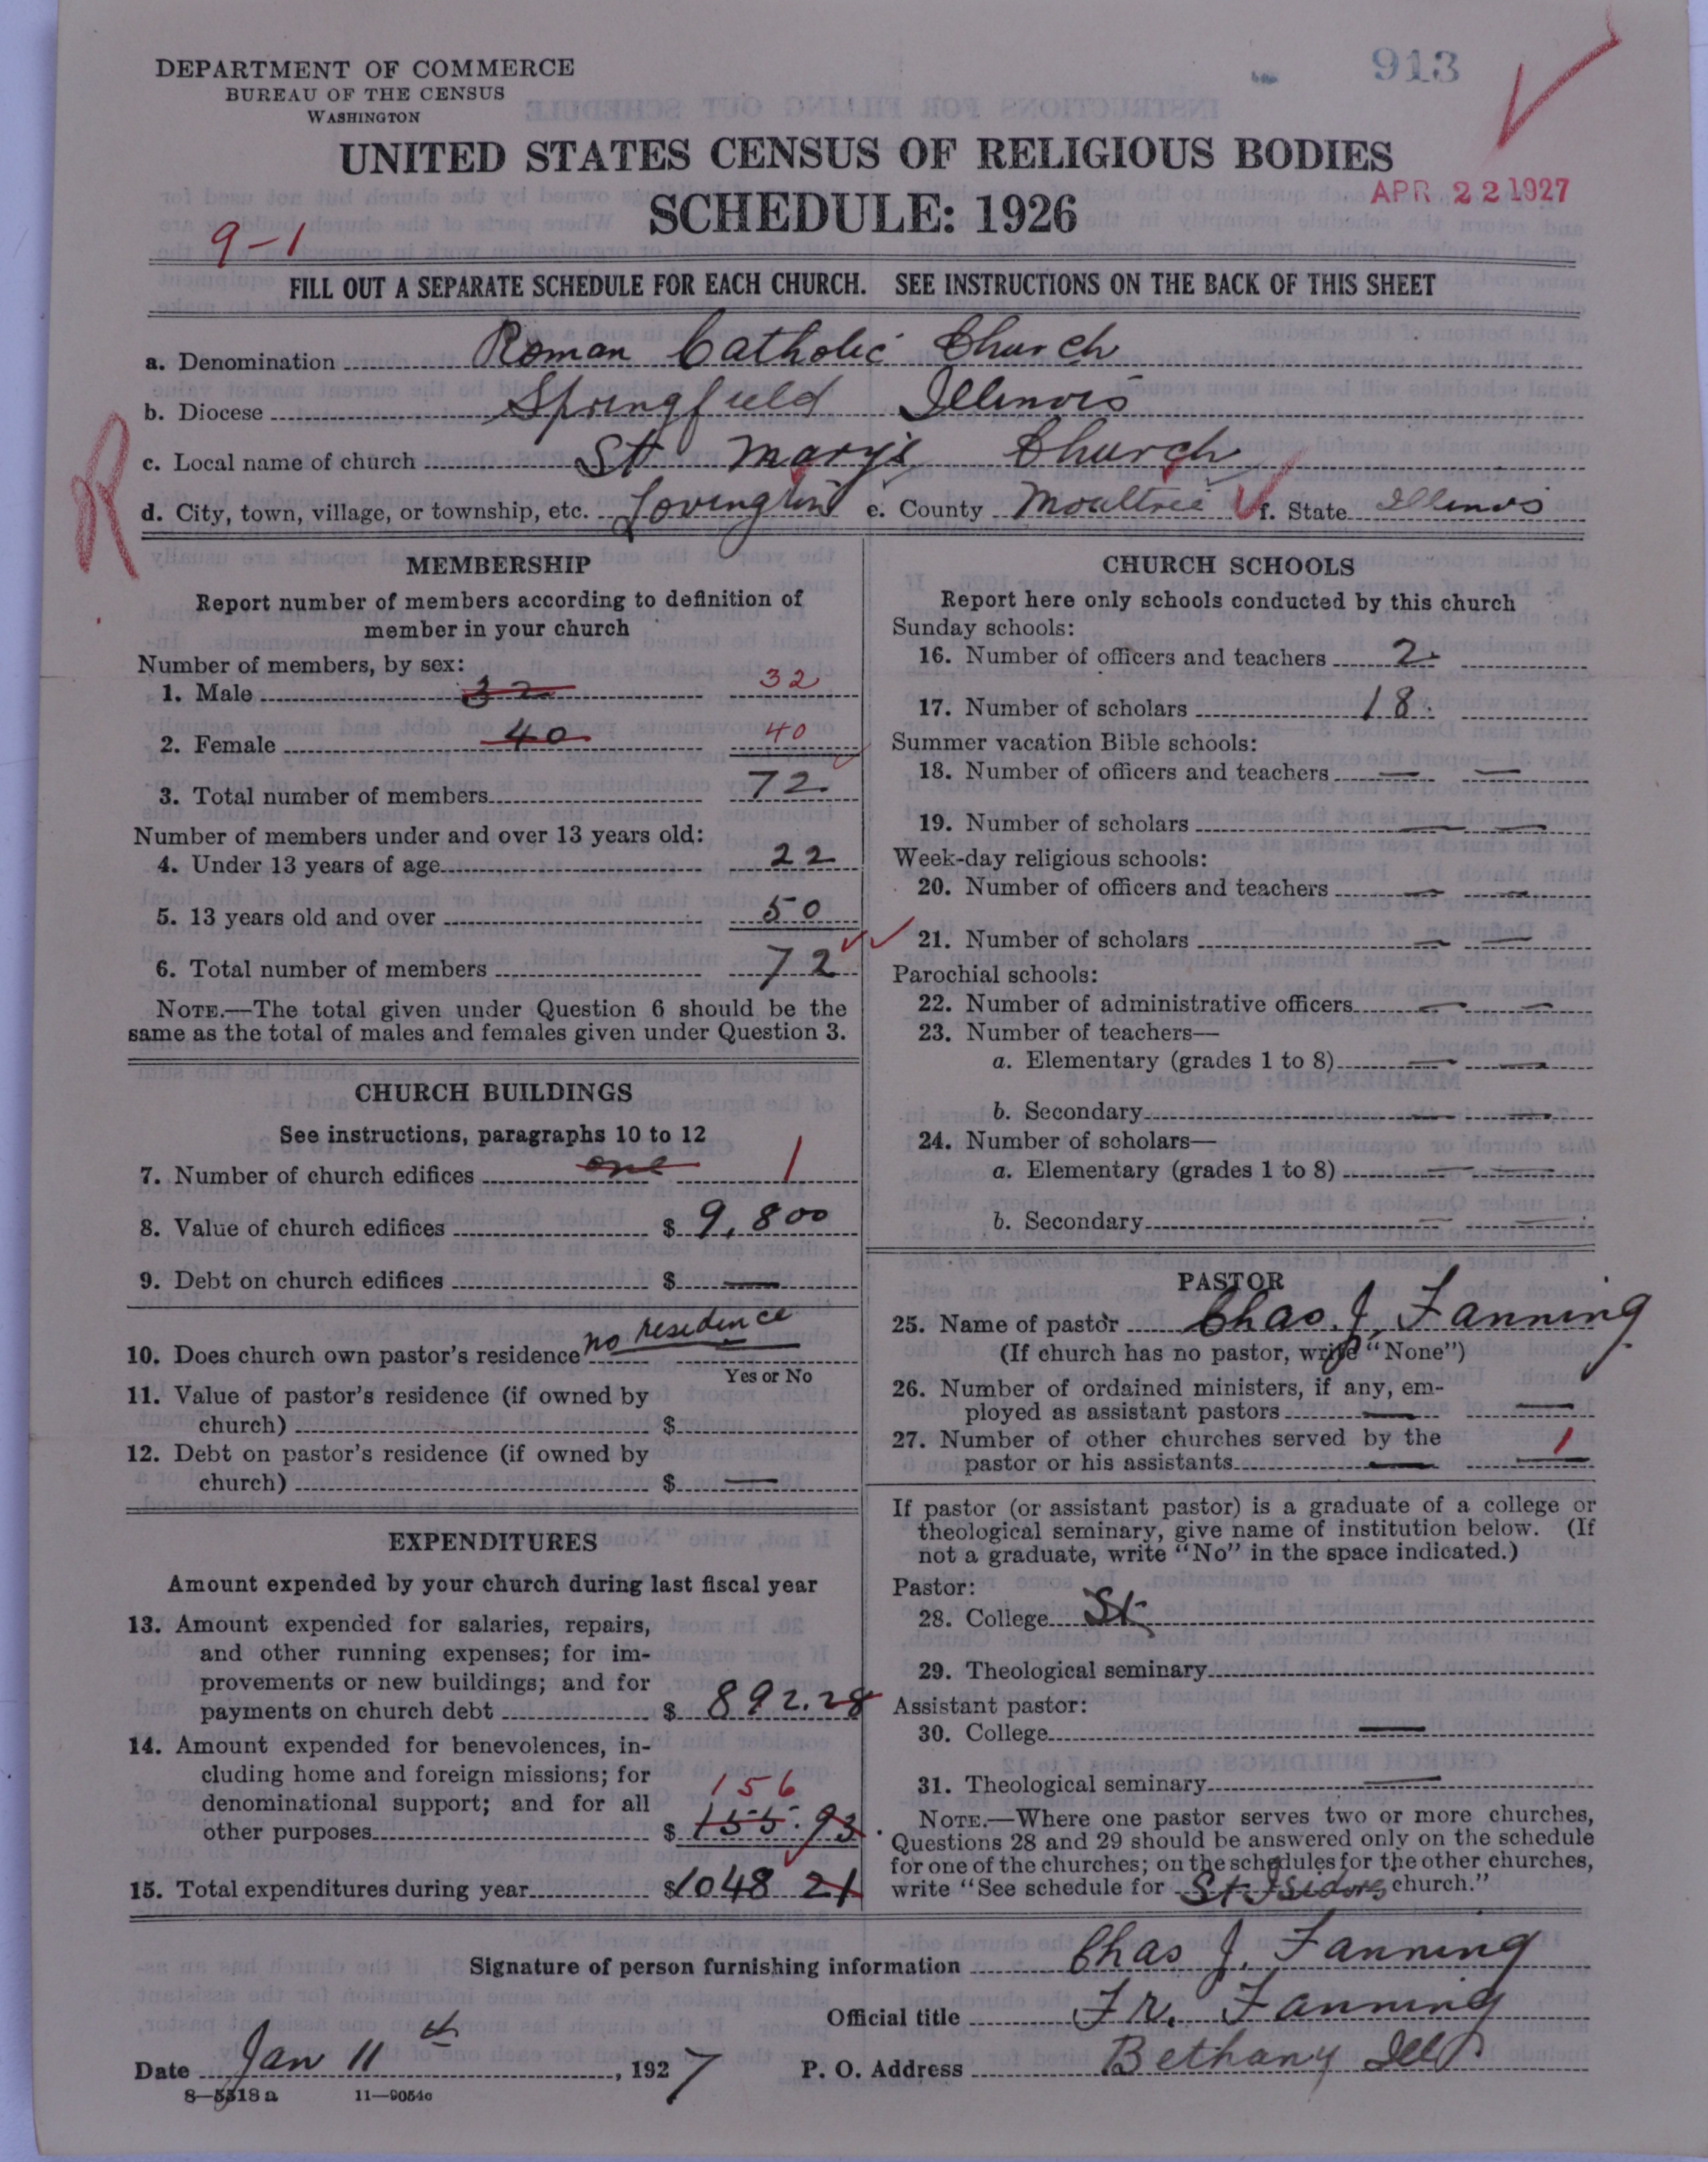 DEPARTMENT OF COMMERCE
BUREAU OF THE CENSUS
WASHINGTON
913
UNITED STATES CENSUS OF RELIGIOUS BODIES
SCHEDULE: 1926
APR 22 1927
9-1
FILL OUT A SEPARATE SCHEDULE FOR EACH CHURCH. SEE INSTRUCTIONS ON THE BACK OF THIS SHEET
a. Denomination Roman Catholic Church
b. Diocese Springfield Illinois
c. Local name of church St Mary's Church
d. City, town, village, or township, etc. Lovington e. County Moultrie f. State Illinois
R
MEMBERSHIP
Report number of members according to definition of
member in your church
Number of members, by sex:
1. Male 32 32
2. Female 40 40
3. Total number of members 72
Number of members under and over 13 years old:
4. Under 13 years of age 22
5. 13 years old and over 50
6. Total number of members 72
NOTE.—The total given under Question 6 should be the
same as the total of males and females given under Question 3.
CHURCH BUILDINGS
See instructions, paragraphs 10 to 12
7. Number of church edifices one 1
8. Value of church edifices $ 9,800
9. Debt on church edifices $ —
10. Does church own pastor's residence no residence
Yes or No
11. Value of pastor's residence (if owned by
church) $
12. Debt on pastor's residence (if owned by
church) $ —
EXPENDITURES
Amount expended by your church during last fiscal year
13. Amount expended for salaries, repairs,
and other running expenses; for im-
provements or new buildings; and for
payments on church debt $ 892.28
14. Amount expended for benevolences, in-
cluding home and foreign missions; for
denominational support; and for all
156
other purposes $ 155.93
15. Total expenditures during year $1048 21
CHURCH SCHOOLS
Report here only schools conducted by this church
Sunday schools:
16. Number of officers and teachers 2
17. Number of scholars 18
Summer vacation Bible schools:
18. Number of officers and teachers — —
19. Number of scholars — —
Week-day religious schools:
20. Number of officers and teachers — —
21. Number of scholars — —
Parochial schools:
22. Number of administrative officers — —
23. Number of teachers—
a. Elementary (grades 1 to 8) — —
b. Secondary — —
24. Number of scholars—
a. Elementary (grades 1 to 8) — —
b. Secondary — —
PASTOR
25. Name of pastor Chas. J. Fanning
(If church has no pastor, write "None")
26. Number of ordained ministers, if any, em-
ployed as assistant pastors — —
27. Number of other churches served by the
pastor or his assistants — — 1
If pastor (or assistant pastor) is a graduate of a college or
theological seminary, give name of institution below. (If
not a graduate, write "No" in the space indicated.)
Pastor:
28. College St
29. Theological seminary
Assistant pastor:
30. College —
31. Theological seminary —
NOTE.—Where one pastor serves two or more churches,
Questions 28 and 29 should be answered only on the schedule
for one of the churches; on the schedules for the other churches,
write "See schedule for St Isidores church."
Signature of person furnishing information Chas J. Fanning
Official title Fr. Fanning
Date Jan 11th, 1927 P. O. Address Bethany Ills
8—5318 a 11—9054c